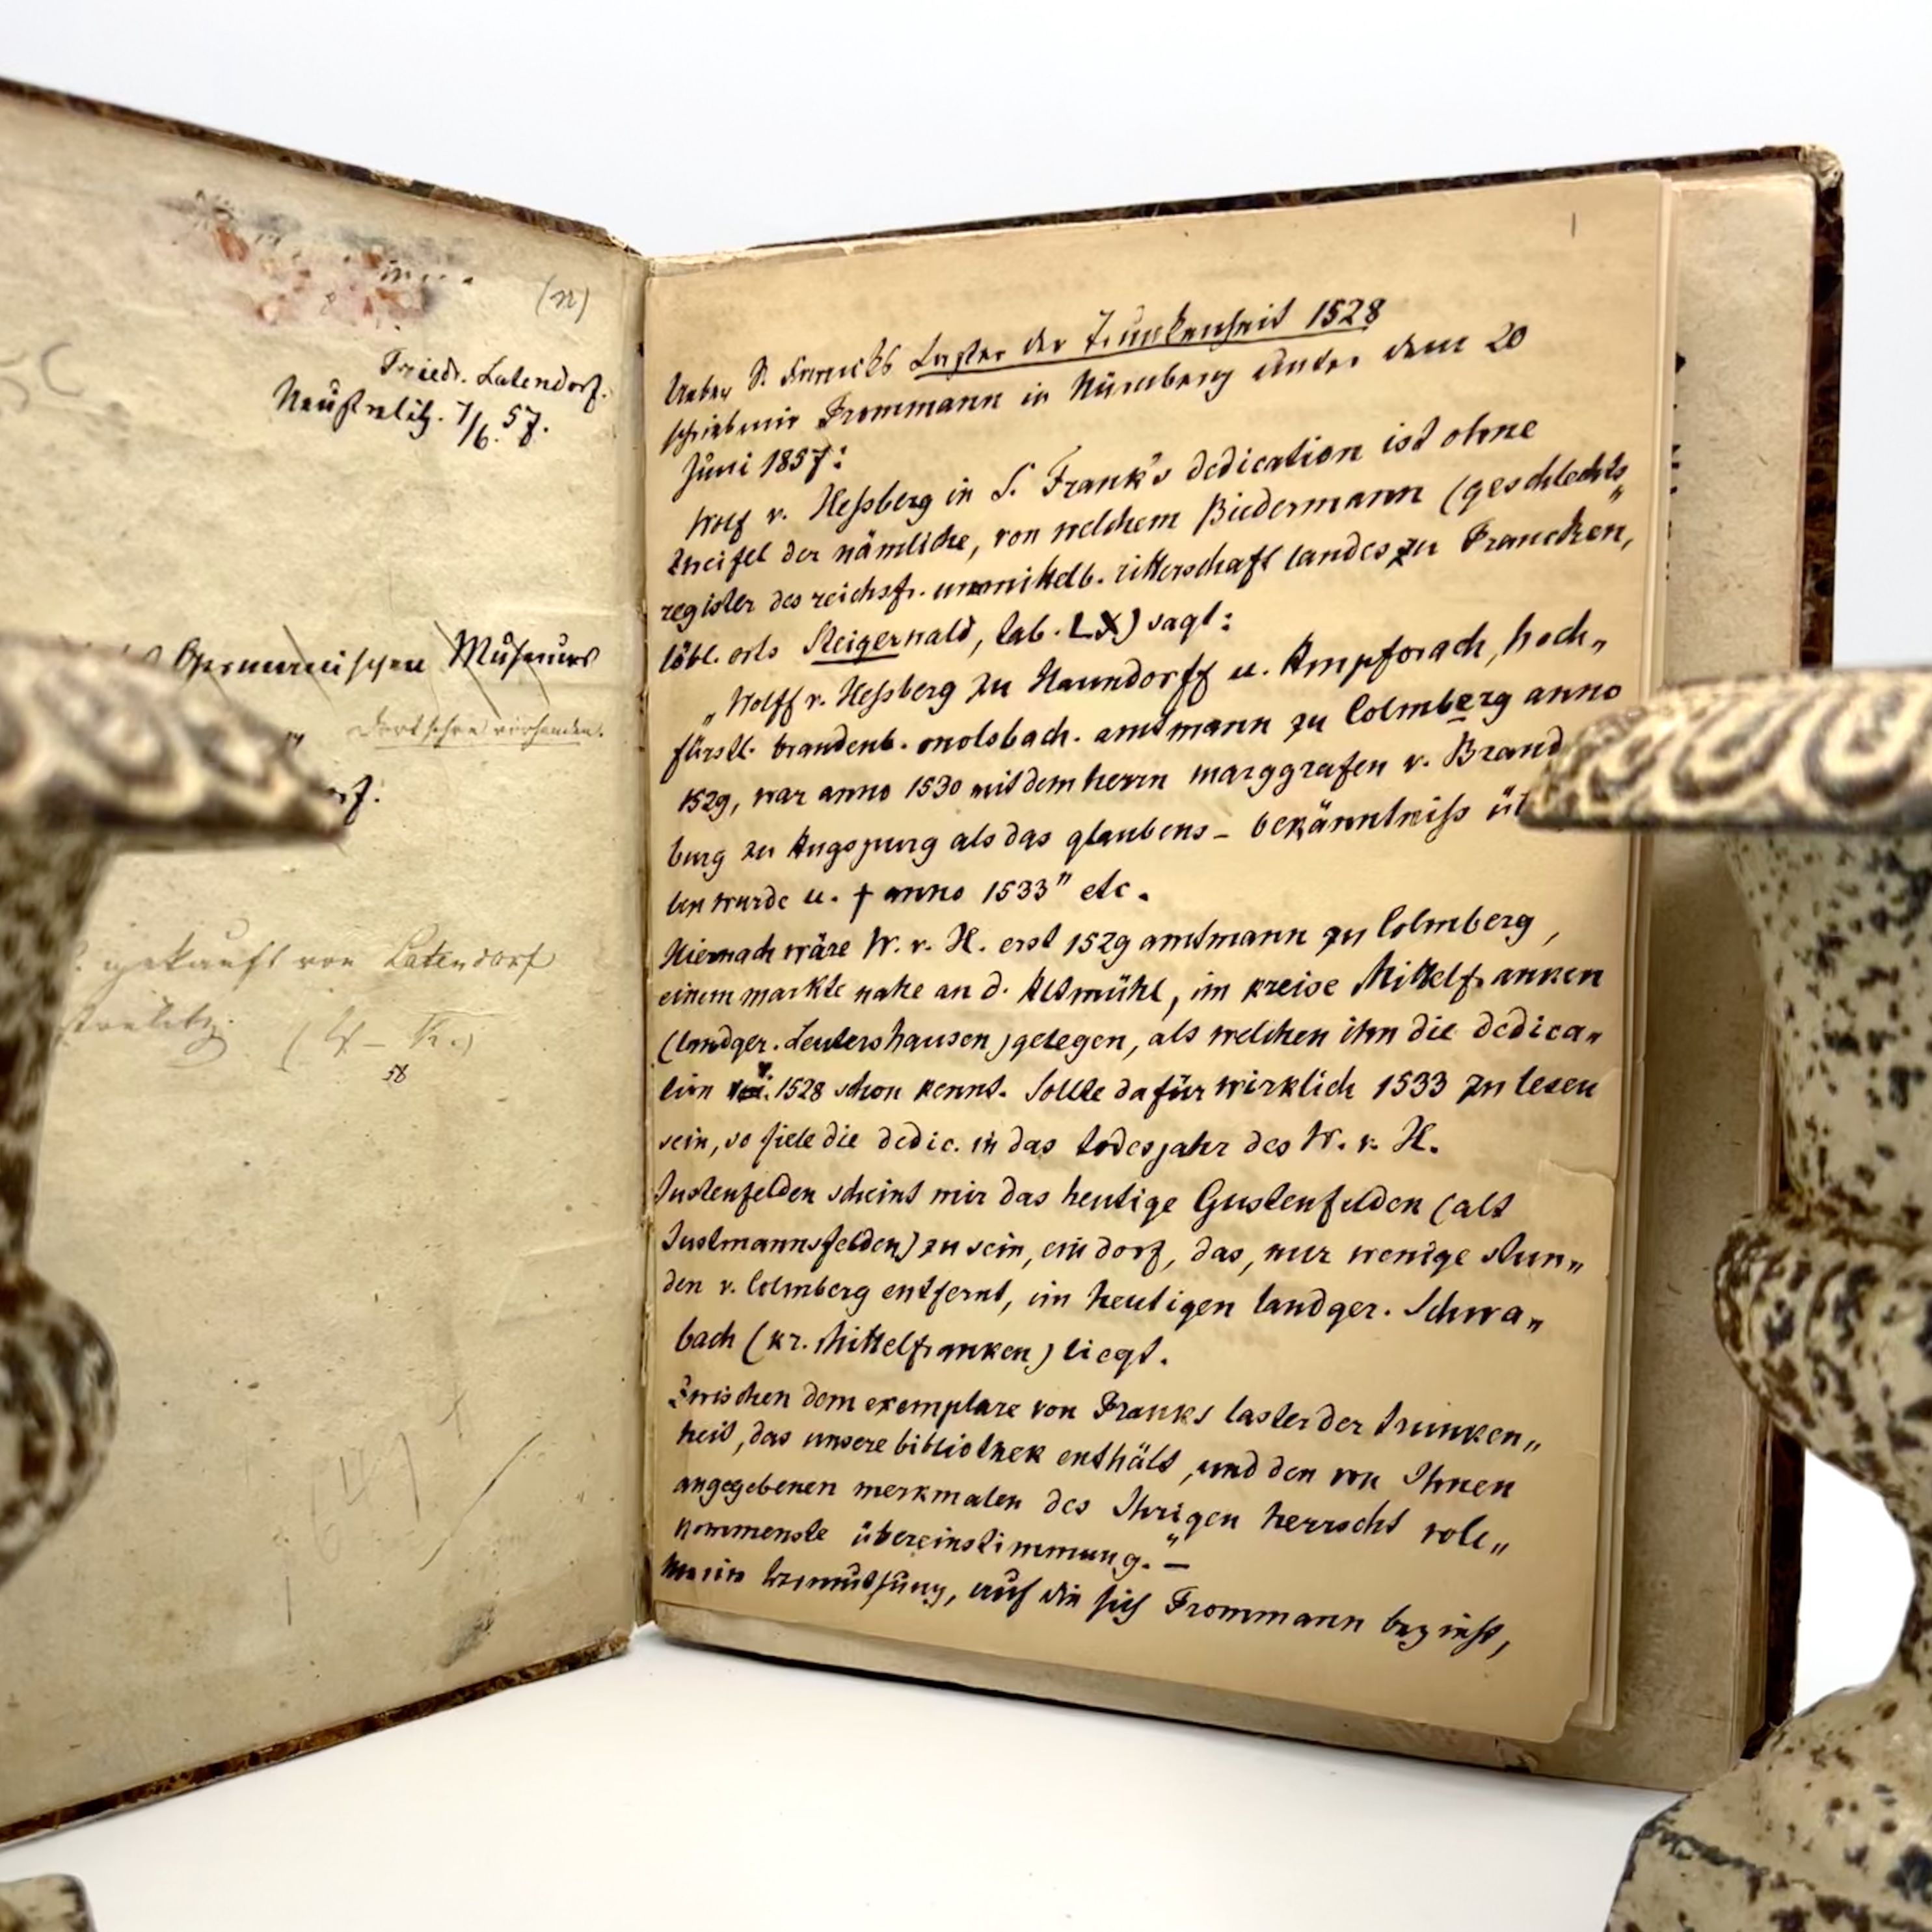 (n)
Friedr. Latendorf.
Neustrelitz. 7/6. 57.
Germanischen Museums
Dort schon vorhanden.
rf.
gekauft von Latendorf
strelitz.
58
Ueber S. Francks Laster der Trunkenheit 1528
schrieb mir Frommann in Nürnberg unter dem 20
Juni 1857:
Wolf v. Heßberg in S. Frank's dedication ist ohne
Zweifel der nämliche, von welchem Biedermann (geschlechts„
register des reichsfr. unmittelb. ritterschaft landes zu Francken,
löbl. orts Steigerwald, tab. LX) sagt:
„Wolff v. Heßberg zu Haundorff u. Ampferach, hoch„
fürstl. brandenb. onolsbach. amtmann zu Colmberg anno
1529, war anno 1530 mit dem herrn marggrafen v. Brand
burg zu Augspurg als das glaubens- bekänntniss üb
ben wurde u. † anno 1533" etc.
Hiernach wäre W. v. H. erst 1529 amtmann zu Colmberg,
einem markte nahe an d. Altmühl, im kreise Mittelfranken
(landger. Leutershausen) gelegen, als welchen ihn die dedica„
tion v. 1528 schon kennt. Sollte dafür wirklich 1533 zu lesen
sein, so fiele die dedic. in das todesjahr des W. v. H.
Justenfelden scheint mir das heutige Gustenfelden (alt
Justmannsfelden) zu sein, ein dorf, das, nur wenige stun„
den v. Colmberg entfernt, im heutigen landger. Schwa„
bach (kr. Mittelfranken) liegt.
Zwischen dem exemplare von Franks laster der trunken„
heit, das unsere bibliothek enthält, und den von Ihnen
angegebenen merkmalen des Ihrigen herrscht voll„
kommenste übereinstimmung." —
Meine Vermuthung, auf die sich Frommann bezieht,